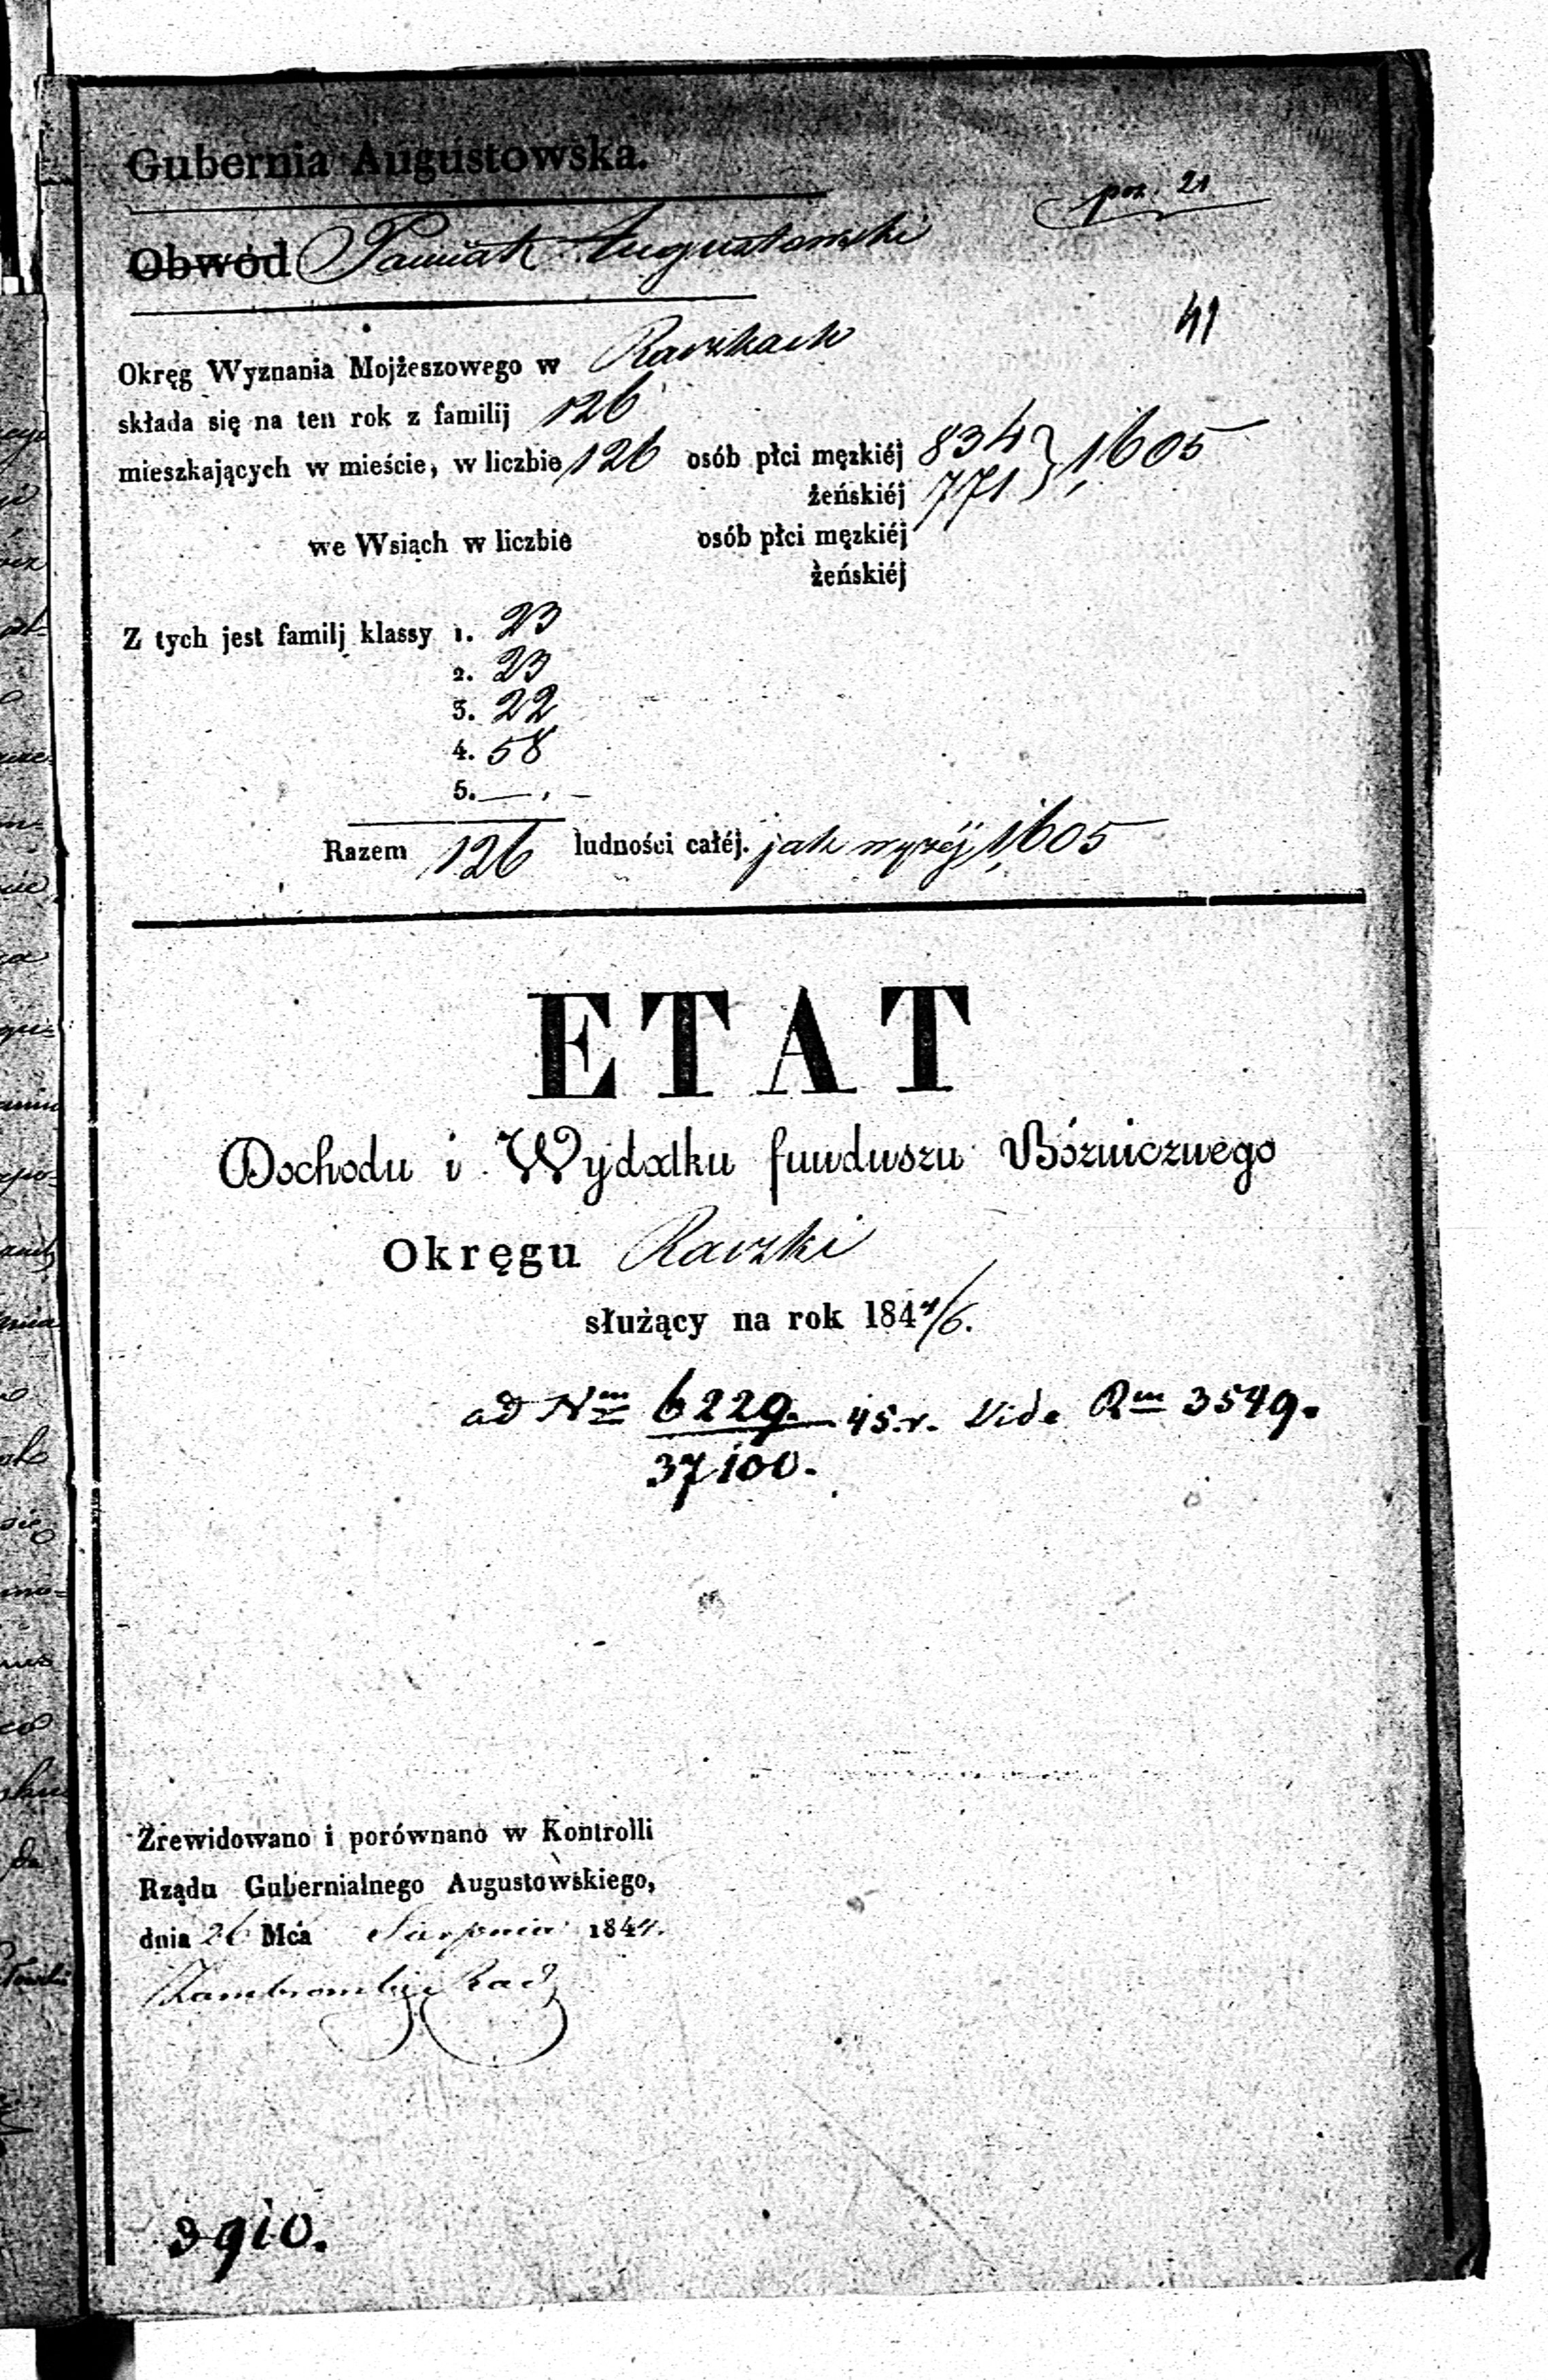 Gubernia Augustowska.
poz. 21
Obwód Powiat Augustowski
41
Okręg Wyznania Mojżeszowego w Raczkach
składa się na ten rok z familij 126
mieszkających w mieście, w liczbie 126 osób płci męzkiéj 834 } 1,605
żeńskiéj 771
we Wsiąch w liczbie osób płci męzkiéj
żeńskiéj
Z tych jest familj klassy 1. 23
2. 23
3. 22
4. 58
5. — , —
Razem 126 ludności całéj. jak wyżéj 1,605
ETAT
Dochodu i Wydatku funduszu Bóznicznego
Okręgu Raczki
służący na rok 1844/6.
ad Nm 6229. 45.r. Vide Rm 3549.
37100.
Zrewidowano i porównano w Kontrolli
Rządu Gubernialnego Augustowskiego,
dnia 26 Mca Sierpnia 1844.
3910.